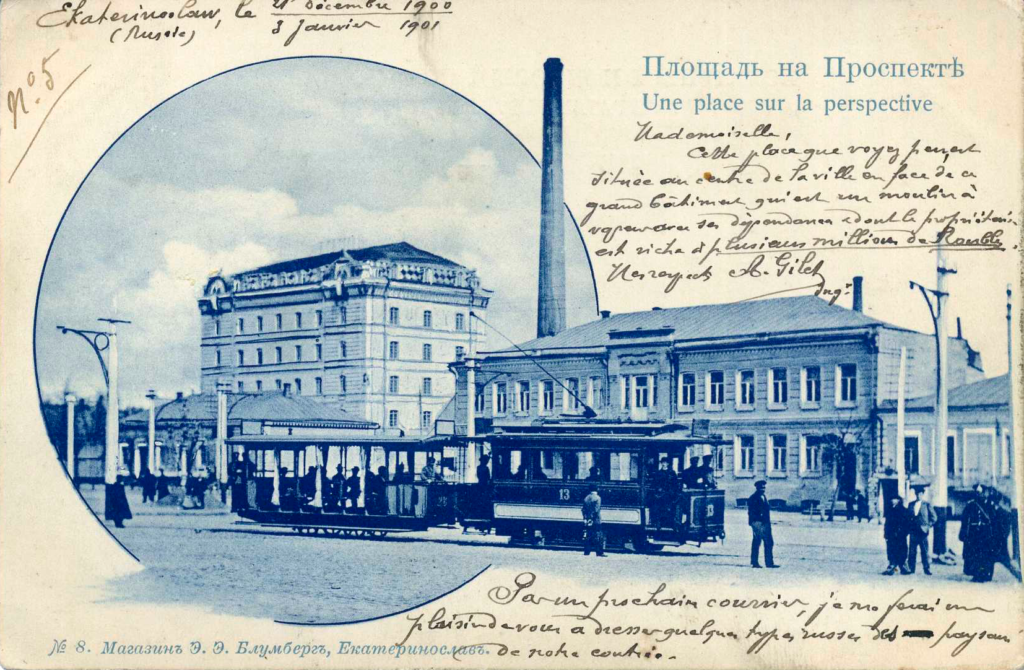 Ekaterinoslaw, le 21 Décembre 1900
(Russie) 3 Janvier 1901
No. 5
Площадь на Проспектѣ
Une place sur la perspective
Mademoiselle,
Cette place que voyez peu, est
située au centre de la ville en face de ce
grand bâtiment qui est un moulin à
vapeur avec ses dépendances dont le propriétaire
est riche à plusieurs millions de Rouble.
Mes respects A. Gilet
Ingr
13
13
Par un prochain courrier, je me ferai un
plaisir de vous adresser quelques types russes des paysans
de notre contrée.
№ 8. Магазинъ Э. Э. Блумбергъ, Екатеринославъ.